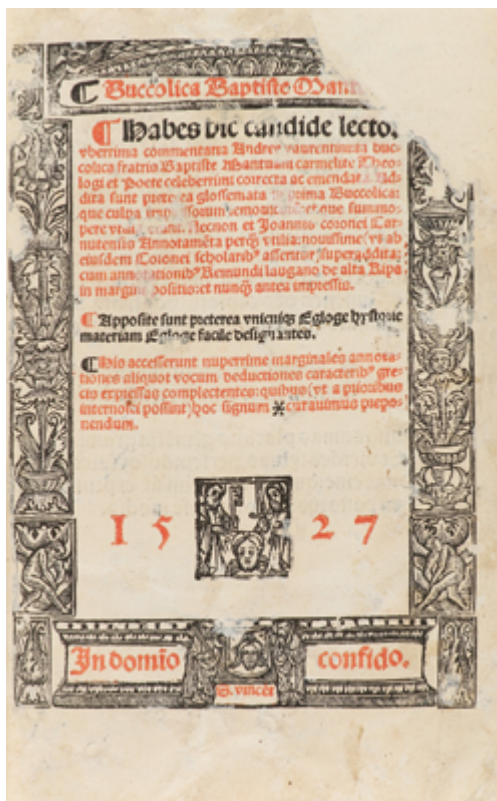 ¶ Buccolica Baptiste Mant
¶ Habes hic candide lecto,
vberrima commentaria Andree vaurentini in buc-
colica fratris Baptiste Mantuani carmelite Theo-
logi et Poete celeberrimi correcta ac emendata. Ad-
dita sunt preterea glossemata in prima Buccolica:
que culpa impressorum
pere vtilia erant. Necnon et Joannis coronei Car-
nutensis Annotamēta perq̄ vtilia: nouissime (vt ab
eiusdem Coronei scholarib⁹ assentur) superaddita:
cum annotationib⁹ Reimundi laugano de alta Ripa
in margine positis: et nunq̄ antea impressis.
¶ Apposite sunt preterea vnicuiq; Egloge hystorie
materiam Egloge facile designantes.
¶ His accesserunt nuperrime marginales annota-
tiones aliquot vocum deductiones caracterib⁹ gre-
cis expressas complectentes: quibus (vt a prioribus
internosci possint) hoc signum ※ curauimus prepo-
nendum.
1 5 2 7
In domīo confido.
S. vincēt